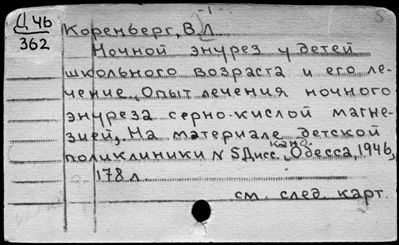 - 1 -
Д 46
362
Коренберг, В.Л
Ночной энурез у детей
школьного возраста и его ле-
чение. Опыт лечения ночного
энуреза серно-кислой магне-
зией, На материале детской
поликлиники N 5 Дисс. канд. Одесса, 1946,
178 л
см. след. карт.